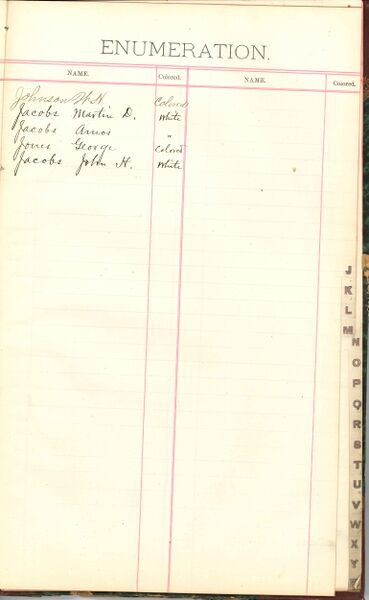 ENUMERATION.
NAME. Colored. NAME. Colored.
Johnson W H Colored
Jacobs Martin D. White
Jacobs Amos "
Jones George Colored
Jacobs John H. White
J
K
L
M
N
O
P
Q
R
S
T
U
V
W
X
Y
Z